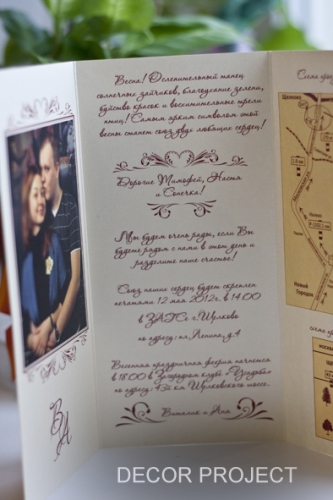 Весна! Ослепительный танец
солнечных зайчиков, благоденние зелени,
буйство красок и восхитительные трели
птиц! Самым ярким символом этой
весны станет союз двух любящих сердец!
Дорогие Тимофей, Настя
и Сонечка!
Мы будем очень рады, если Вы
будете рядом с нами в этот день и
разделите наше счастье!
Союз наших сердец будет скреплен
печатями 12 мая 2012г. в 14.00
в ЗАГСе г.Щелково
по адресу: пл.Ленина, д.4
Весенняя праздничная феерия начнется
в 18.00 в Загородном клубе
по адресу: 43 км Щелковского шоссе.
Виталик и Аня
В
А
Схема
Щелково
DECOR PROJECT